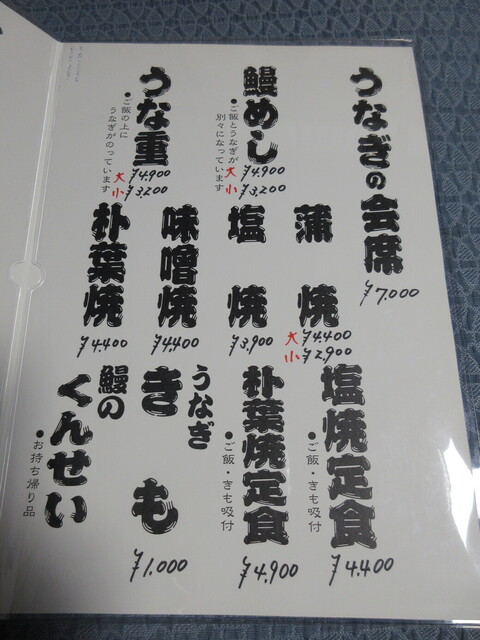 うなぎの会席
¥7,000
鰻めし
●ご飯とうなぎが
別々になっています
大 ¥4,900
小 ¥3,200
うな重
●ご飯の上に
うなぎがのっています
大 ¥4,900
小 ¥3,200
蒲焼
大 ¥4,400
小 ¥2,900
塩焼
¥3,900
味噌焼
¥4,400
朴葉焼
¥4,400
塩焼定食
●ご飯・きも吸付
¥4,400
朴葉焼定食
●ご飯・きも吸付
¥4,900
うなぎ
きも
¥1,000
鰻の
くんせい
●お持ち帰り品